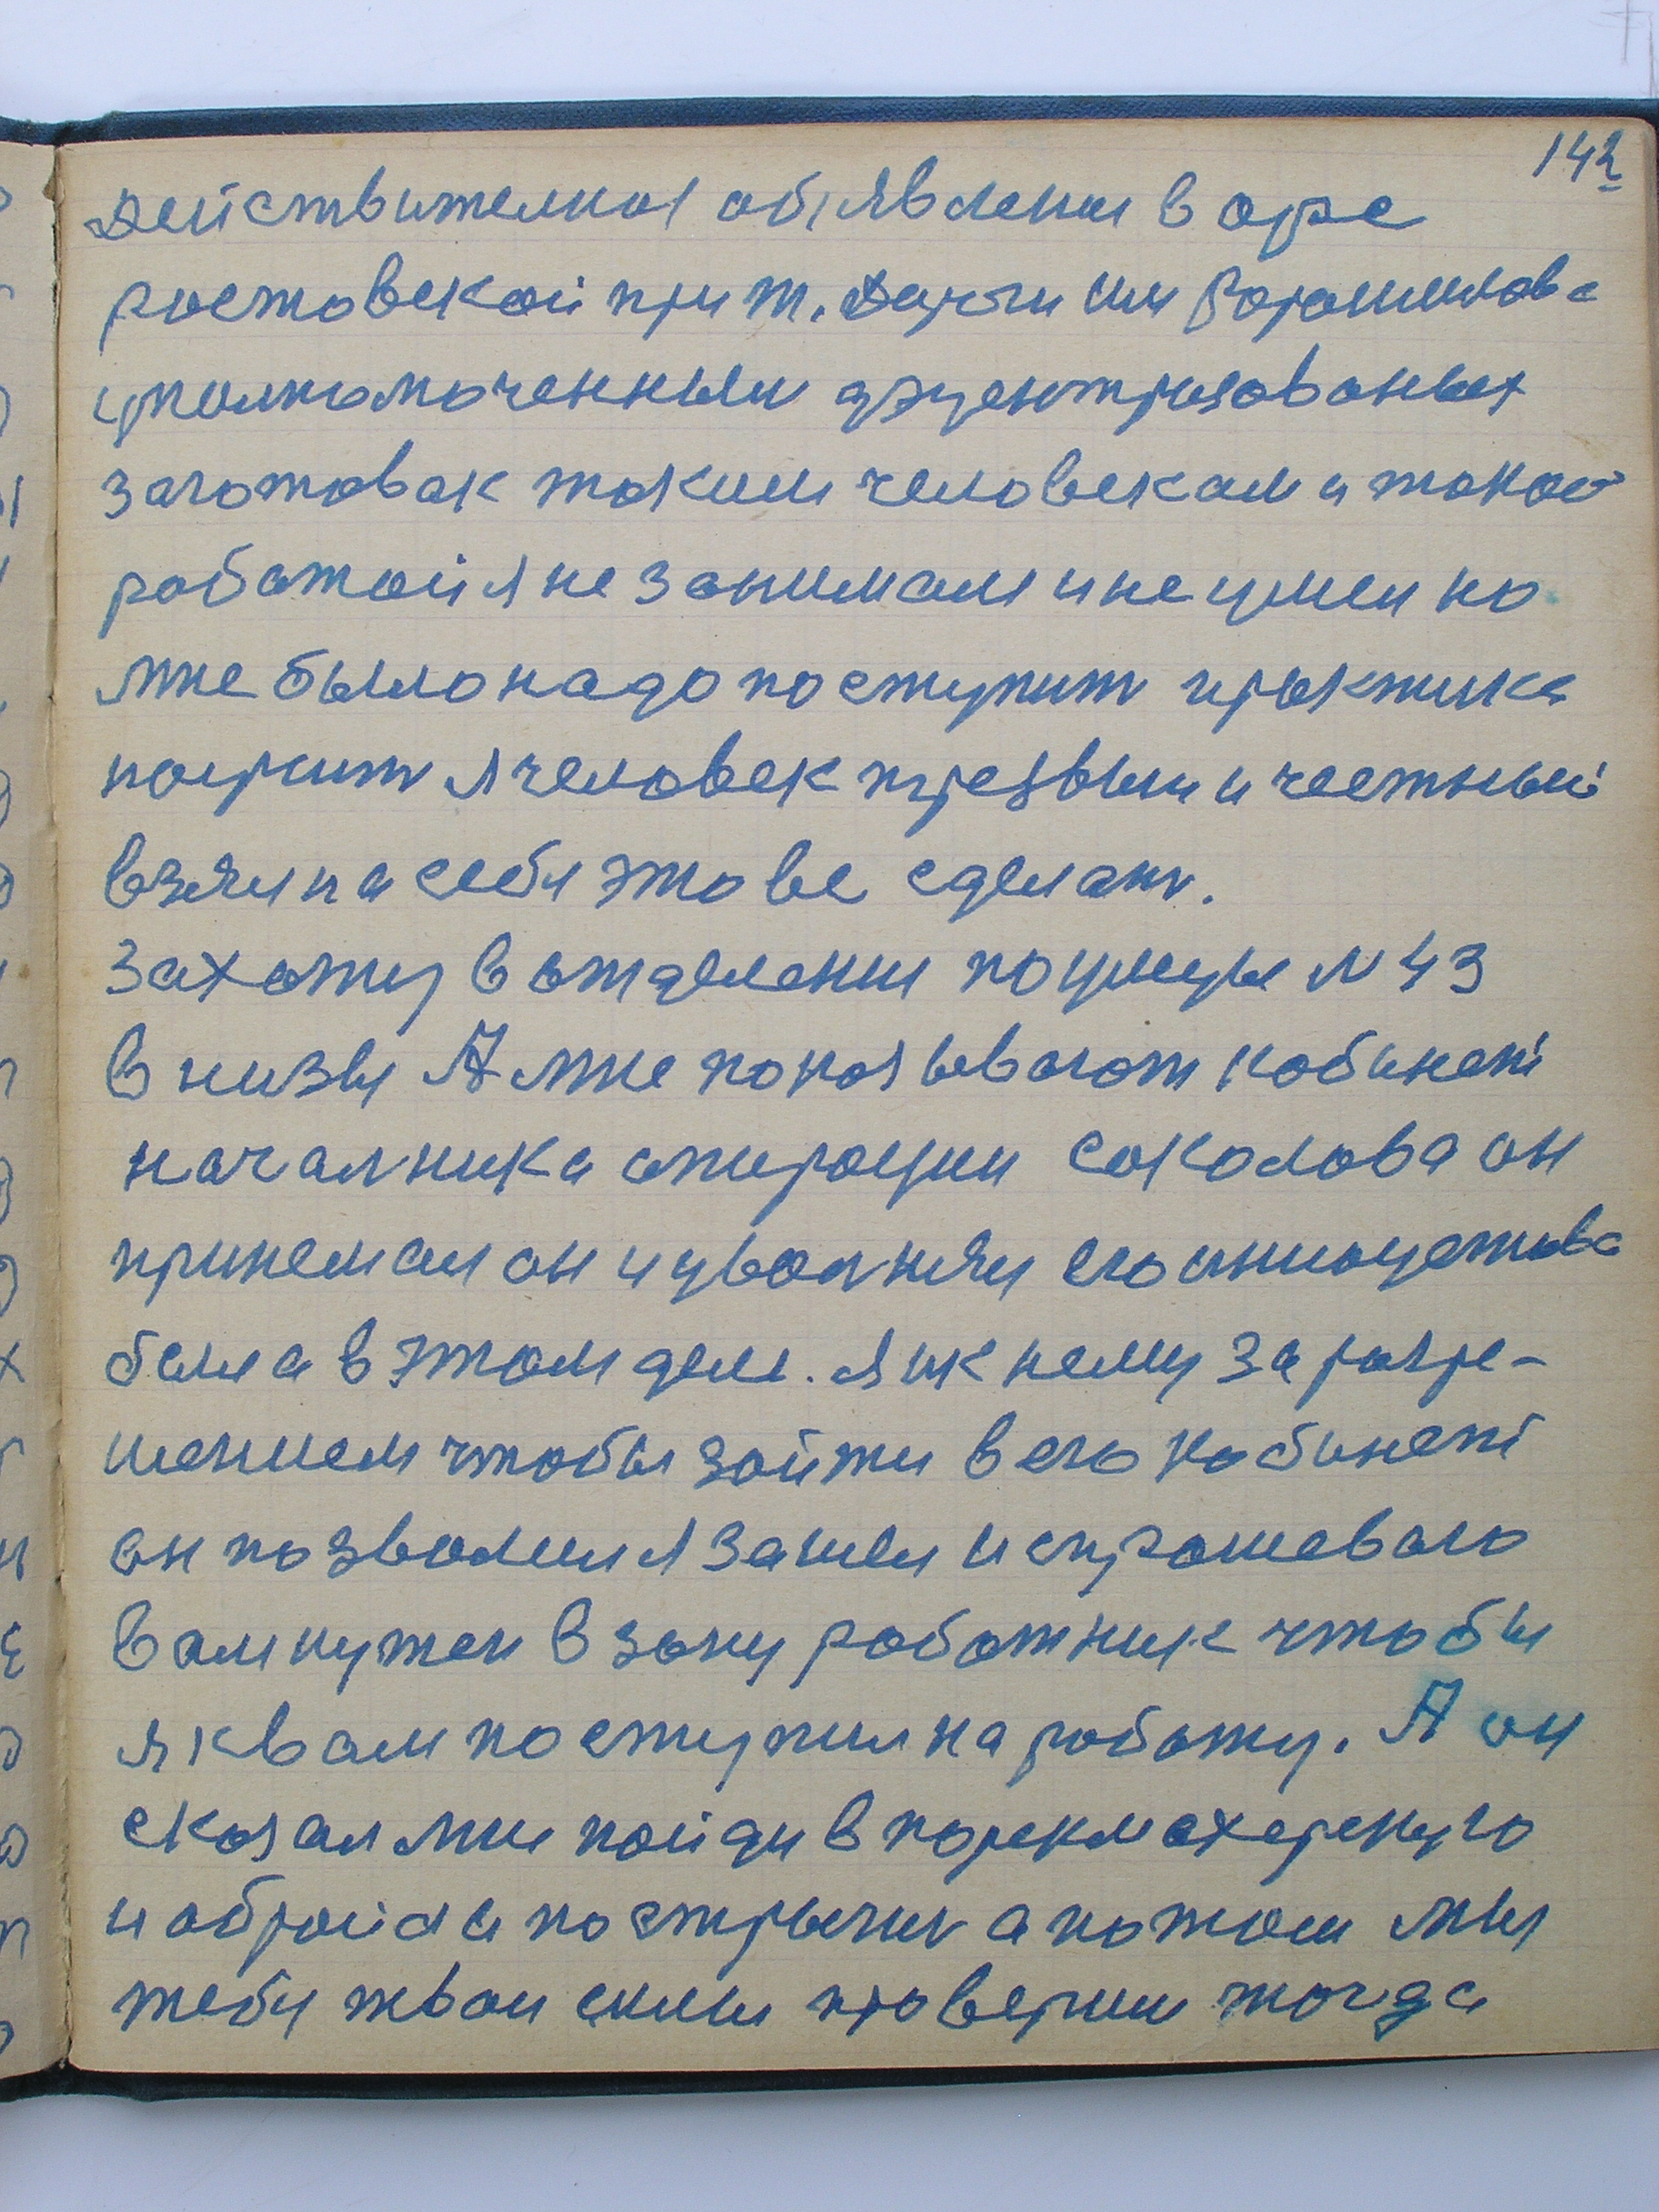 142
Действителноя обıявлении в орсе
ростовской при т. Дарги им Ворошилова
уполномоченным дэцентризованых
заготовак таким человекам и такой
работой я не занимал и не умел но
мне было надо поступит практика
я человек трезвыи и честный
взял на себя это все сделат.
Захожу в отделения по улицы N 43
внизы А мне показывают кабинет
началника опирации соколова он
принемал он и уволнял его инициатива
была в этом деле. Я ик нему за разре-
шением чтобы зайти в его кабинет
он позволил я зашел и спрашеваю
вам нужен в зону работник чтобы
я квам поступил на работу. А он
сказал мни пойди в парикмахерскую
и абройся и постригис а потом мы
тебя твои силы проверим тогда